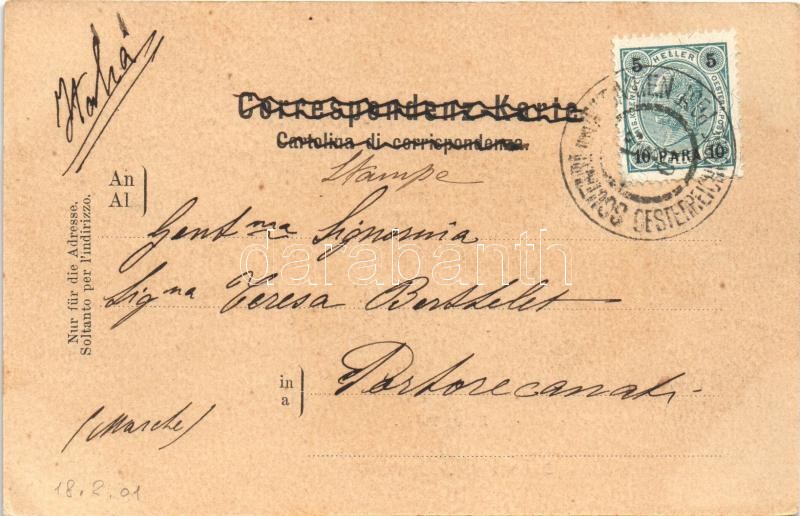 Italia
Correspondenz-Karte
Cartolina di corrispondenza.
Stampe
An
Al
Gent ma Signorina
Sig na Teresa Berthelet
in
a
Portorecanati
(Marche)
Nur für die Adresse.
Soltanto per l'indirizzo.
18.2.01
5 HELLER 5
10 PARA 10
OESTERREICH
darabanth